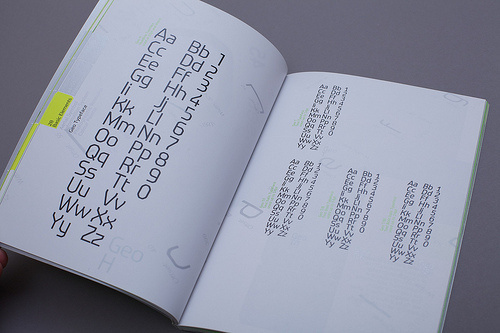 2D
Basic Elements
Geo Typeface
Aa Bb 1
Cc Dd 2
Ee Ff 3
Gg Hh 4
Ii Jj 5
Kk Ll 6
Mm Nn 7
Oo Pp 8
Qq Rr 9
Ss Tt 0
Uu Vv
Ww Xx
Yy Zz
Geo
H
Aa Bb 1
Cc Dd 2
Ee Ff 3
Gg Hh 4
Ii Jj 5
Kk Ll 6
Mm Nn 7
Oo Pp 8
Qq Rr 9
Ss Tt 0
Uu Vv
Ww Xx
Yy Zz
Aa Bb 1
Cc Dd 2
Ee Ff 3
Gg Hh 4
Ii Jj 5
Kk Ll 6
Mm Nn 7
Oo Pp 8
Qq Rr 9
Ss Tt 0
Uu Vv
Ww Xx
Yy Zz
Aa Bb 1
Cc Dd 2
Ee Ff 3
Gg Hh 4
Ii Jj 5
Kk Ll 6
Mm Nn 7
Oo Pp 8
Qq Rr 9
Ss Tt 0
Uu Vv
Ww Xx
Yy Zz
Aa Bb 1
Cc Dd 2
Ee Ff 3
Gg Hh 4
Ii Jj 5
Kk Ll 6
Mm Nn 7
Oo Pp 8
Qq Rr 9
Ss Tt 0
Uu Vv
Ww Xx
Yy Zz
d